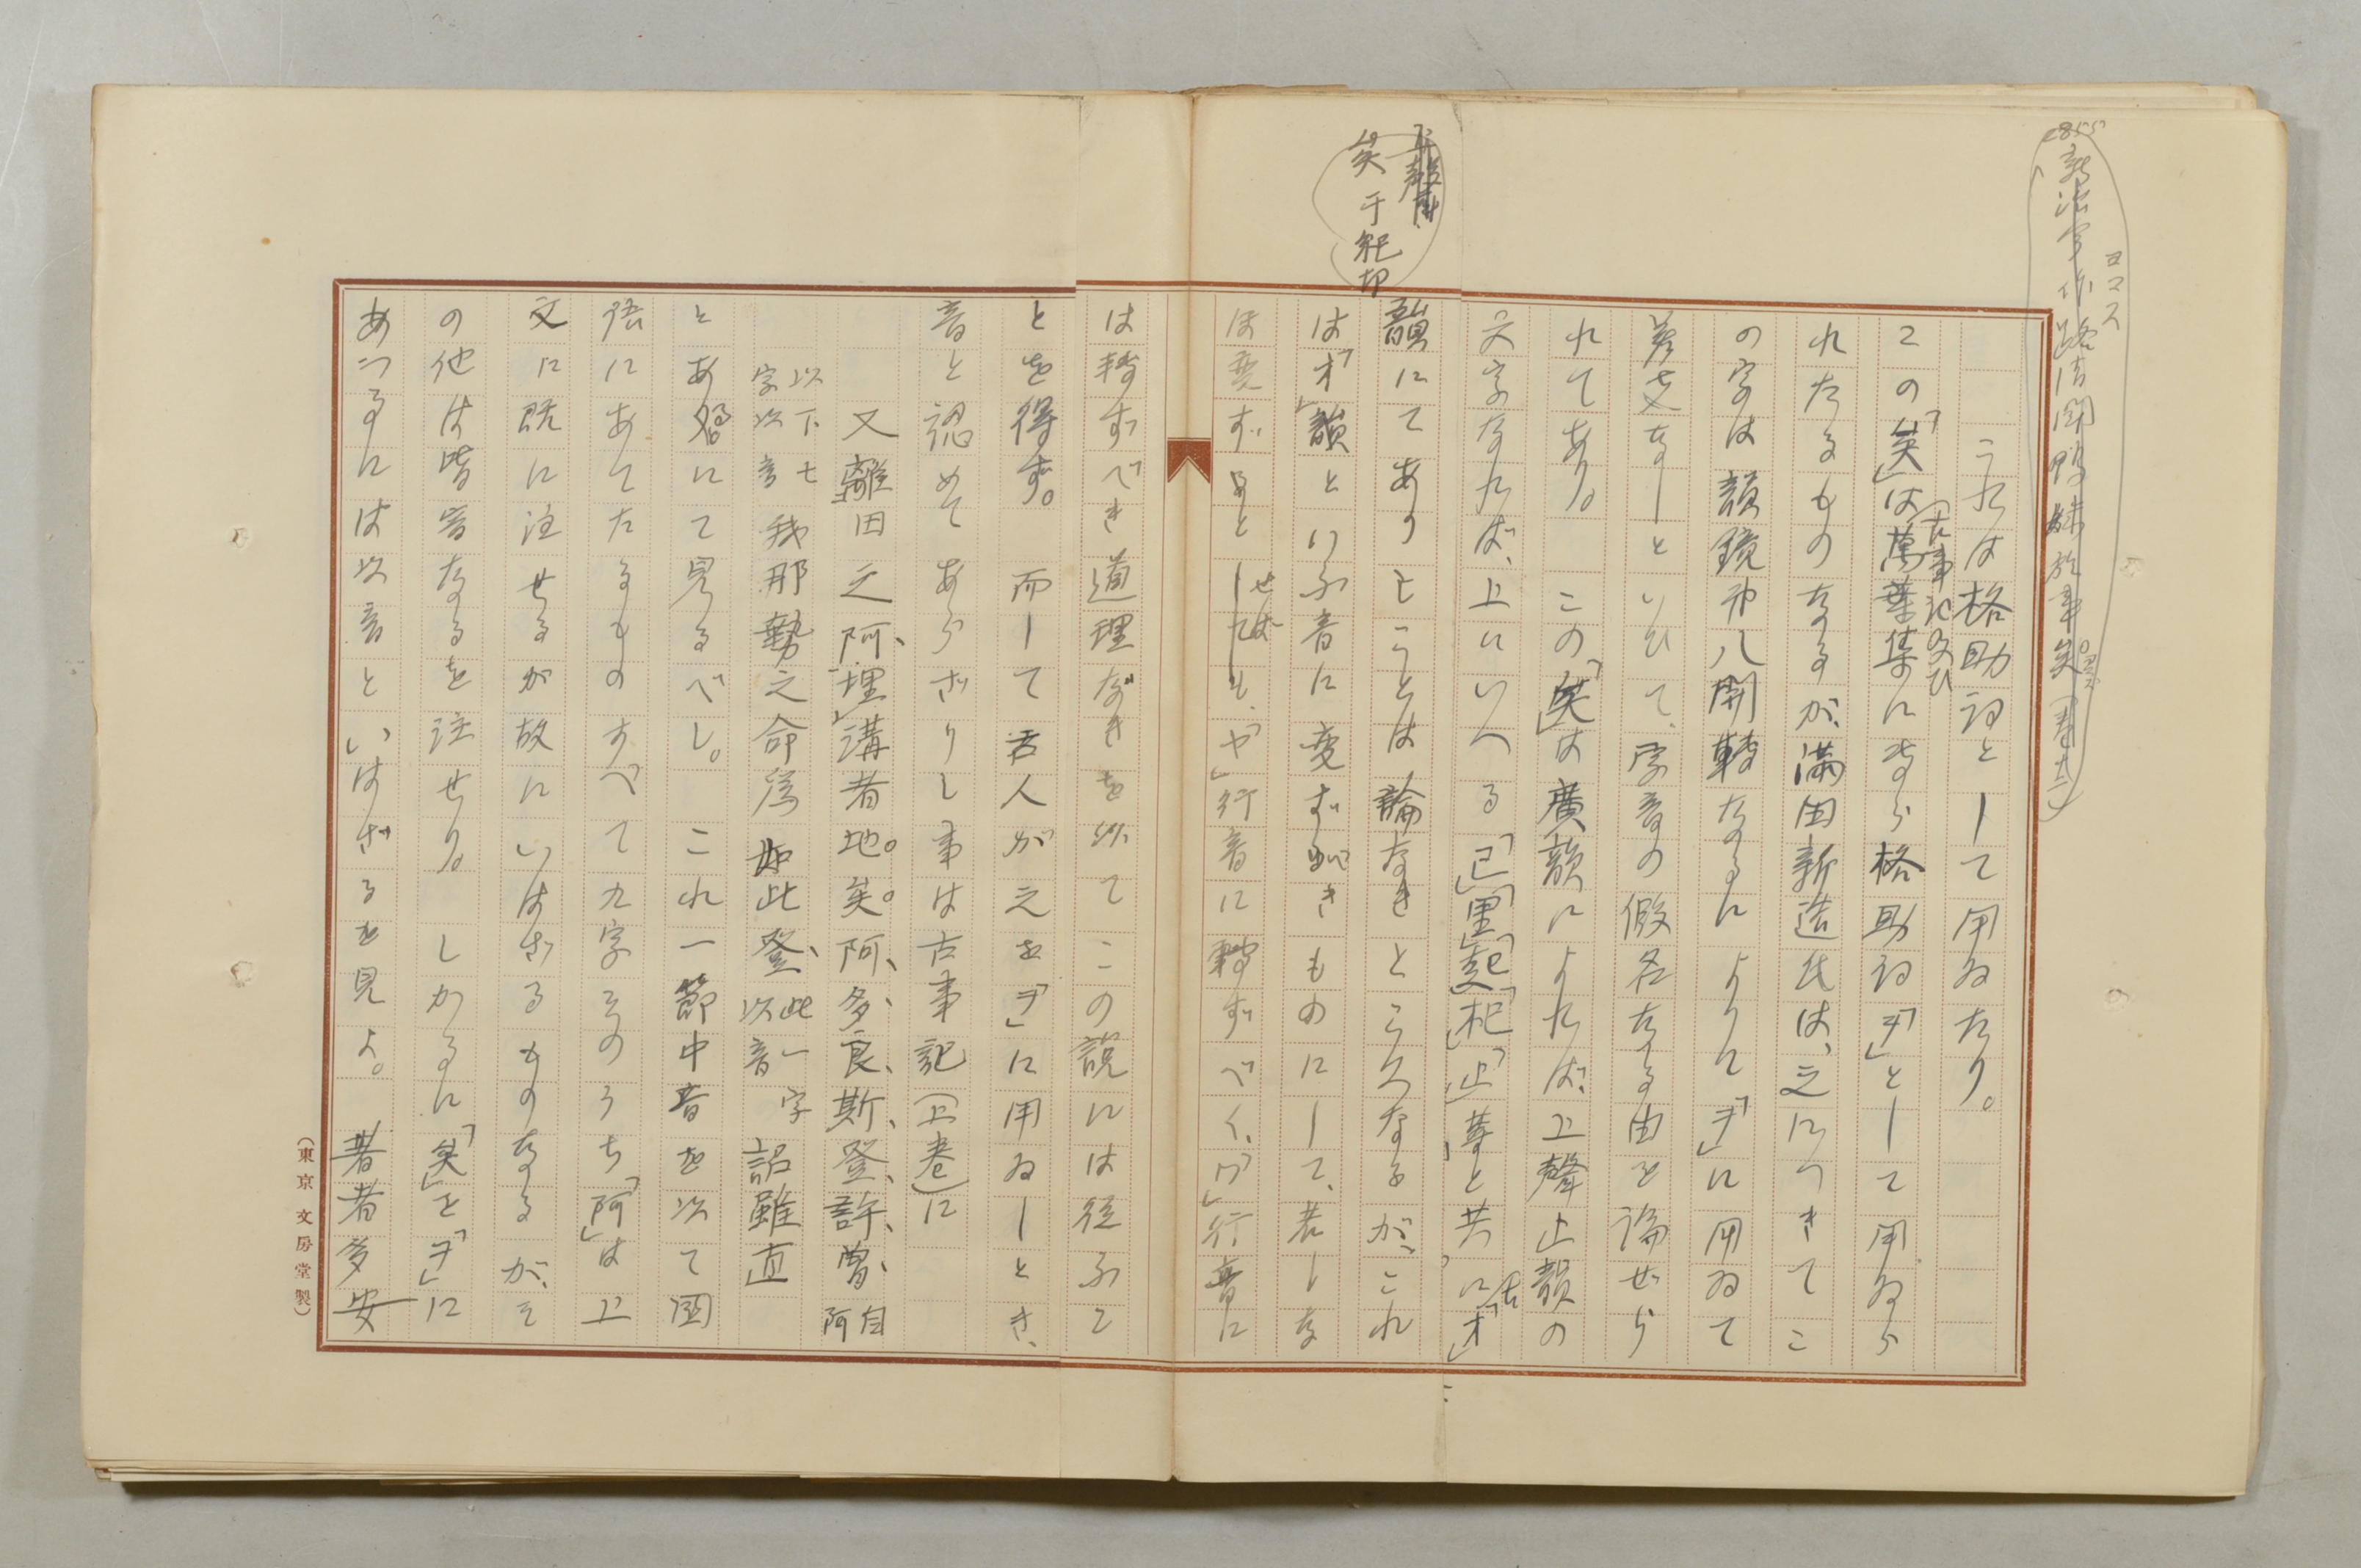 これは格助詞として用ゐたり。
この「矣」は古事記及び萬葉集に専ら格助詞「ヲ」として用ゐら
れたるものなるが、満田新造氏は、之につきてこ
の字は韻鏡第八開轉なるによりて「ヲ」に用ゐて
差支なしといひて、字音の假名なる由を論ぜら
れてあり。 この「矣」は廣韻によれば、上聲止韻の
文字なれば、上にいへる「已」「里」「起」「杞」「止」等と共に
韻にてありしことは論なきところなるが、これ
は「オ」韻といふ音に変ずべきものにして、若しな
ほ変ずるとせば、「ヤ」行音に轉ずべく、「ワ」行音に
は轉ずべき道理なきを以てこの説には従ふこ
とを得ず。 而して古人が之を「ヲ」に用ゐしとき、
音と認めてあらざりし事は古事記(上巻)に
又離田之阿、埋溝者地。矣。阿、多、良、斯、登、許、曽、自阿
以下七字以音 我那勢之命爲如此登、此一字以音 詔雖直
とある條にて見るべし。 これ一節中音を以て國
語にあてたるものすべて九字そのうち「阿」は上
文に既に注せるが故にいはざるものなるが、そ
の他は皆音なるを注せり。 しかるに「矣」を「ヲ」に
あつるには以音といはざるを見よ。 著者多安
矣 于紀切
2855
コロス
(東京 文房堂製)